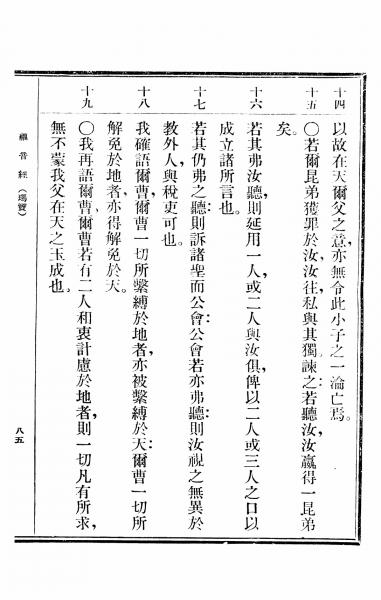 十四 以故在天爾父之意亦無令此小子之一淪亡焉。
十五 〇若爾昆弟獲罪於汝汝往私與其獨諫之若聽汝汝贏得一昆弟
矣。
十六 若其弗汝聽則延用一人或二人與汝俱俾以二人或三人之口以
成立諸所言也。
十七 若其仍弗之聽則訴諸聖而公會公會若亦弗聽則汝視之無異於
教外人與稅吏可也。
十八 我確語爾曹爾曹一切所繫縛於地者亦被繫縛於天爾曹一切所
解免於地者亦得解免於天。
十九 〇我再語爾曹爾曹若有二人和衷計慮於地者則一切凡有所求,
無不蒙我父在天之玉成也。
福音經(瑪竇)
八五